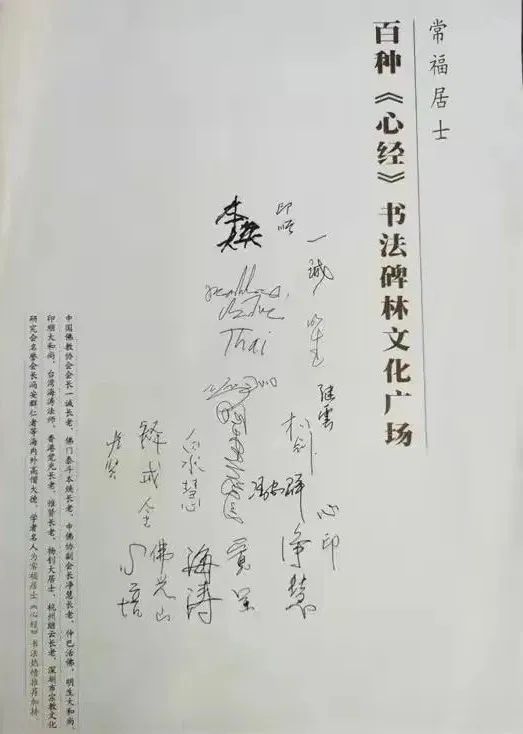 常福居士
百种《心经》书法碑林文化广场
一诚
印顺
本焕
继云
Thai
心印
净慧
海涛
佛光山
心培
释戒全
中国佛教协会会长一诚长老、佛门泰斗本焕长老、中佛协副会长净慧长老、仲巴活佛、明生大和尚、
印顺大和尚、台湾海涛法师、香港觉光长老、惟贤长老、杨钊大居士、杭州继云长老、深圳市宗教文化
研究会名誉会长冯安群仁者等海内外高僧大德、学者名人为常福居士《心经》书法热情推荐加持。